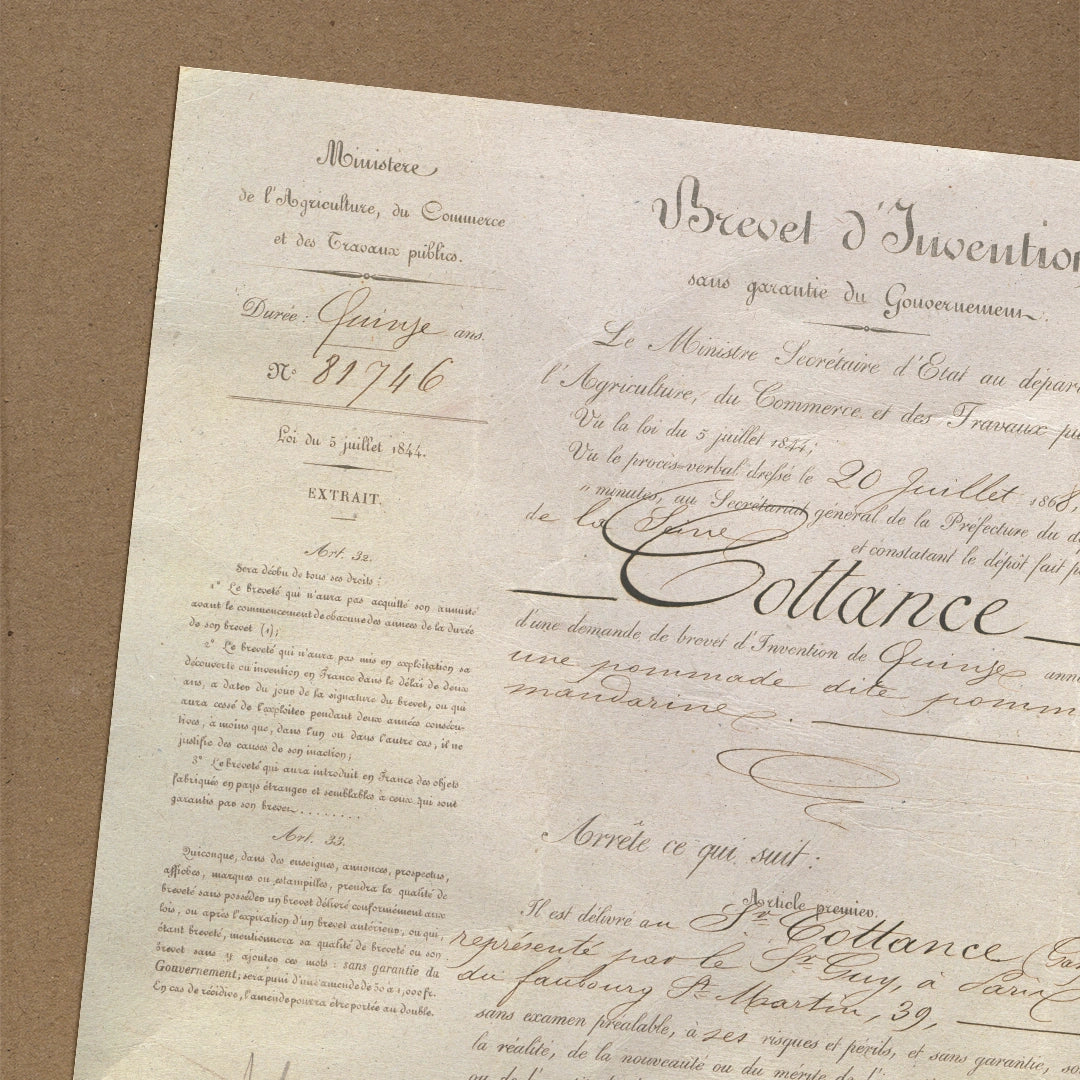 Ministère
de l'Agriculture, du Commerce
et des Travaux publics.
Durée : Quinze ans.
N° 81746
Loi du 5 juillet 1844.
EXTRAIT.
Art. 32.
Sera déchu de tous ses droits :
1° Le breveté qui n'aura pas acquitté son annuité
avant le commencement de chacune des années de la durée
de son brevet (1);
2° Le breveté qui n'aura pas mis en exploitation sa
découverte ou invention en France dans le délai de deux
ans, à dater du jour de la signature du brevet, ou qui
aura cessé de l'exploiter pendant deux années consécu-
tives, à moins que, dans l'un ou dans l'autre cas, il ne
justifie des causes de son inaction;
3° Le breveté qui aura introduit en France des objets
fabriqués en pays étranger et semblables à ceux qui sont
garantis par son brevet........
Art. 33.
Quiconque, dans des enseignes, annonces, prospectus,
affiches, marques ou estampilles, prendra la qualité de
breveté sans posséder un brevet délivré conformément aux
lois, ou après l'expiration d'un brevet antérieur, ou qui,
étant breveté, mentionnera sa qualité de breveté ou son
brevet sans y ajouter ces mots : sans garantie du
Gouvernement, sera puni d'une amende de 50 à 1,000 fr.
En cas de récidive, l'amende pourra être portée au double.
Brevet d'Invention
sans garantie du Gouvernement.
Le Ministre Secrétaire d'Etat au dépar
l'Agriculture, du Commerce et des Travaux pu
Vu la loi du 5 juillet 1844;
Vu le procès-verbal dressé le 20 Juillet 1868,
" minutes, au Secrétariat général de la Préfecture du d
de la Seine et constatant le dépôt fait p
Cottance
d'une demande de brevet d'Invention de Quinze ann
une pommade dite pomm
mandarine.
Arrête ce qui suit :
Article premier.
Il est délivré au Sr. Cottance
représenté par le Sr. Guy, à Paris
du faubourg St. Martin, 39,
sans examen préalable, à ses risques et périls, et sans garantie, so
la réalité, de la nouveauté ou du mérite de l'in